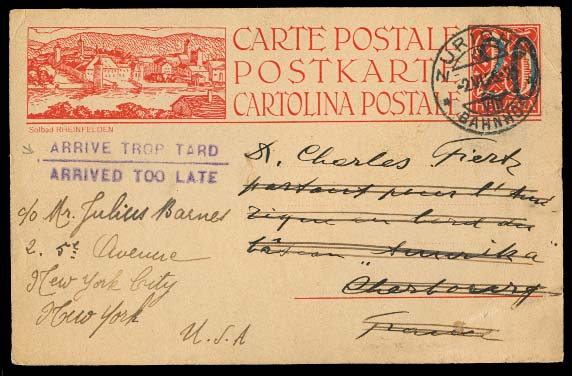 CARTE POSTALE
POSTKARTE
CARTOLINA POSTALE
20
ZÜRICH
BAHNHOF
Solbad RHEINFELDEN
ARRIVE TROP TARD
ARRIVED TOO LATE
Dr. Charles Fiertz
partant pour l'Amé-
rique au bord du
bâteau "Amerika"
Cherbourg
France
c/o Mr. Julius Barnes
2. 5th Avenue
New York City
New York
U.S.A